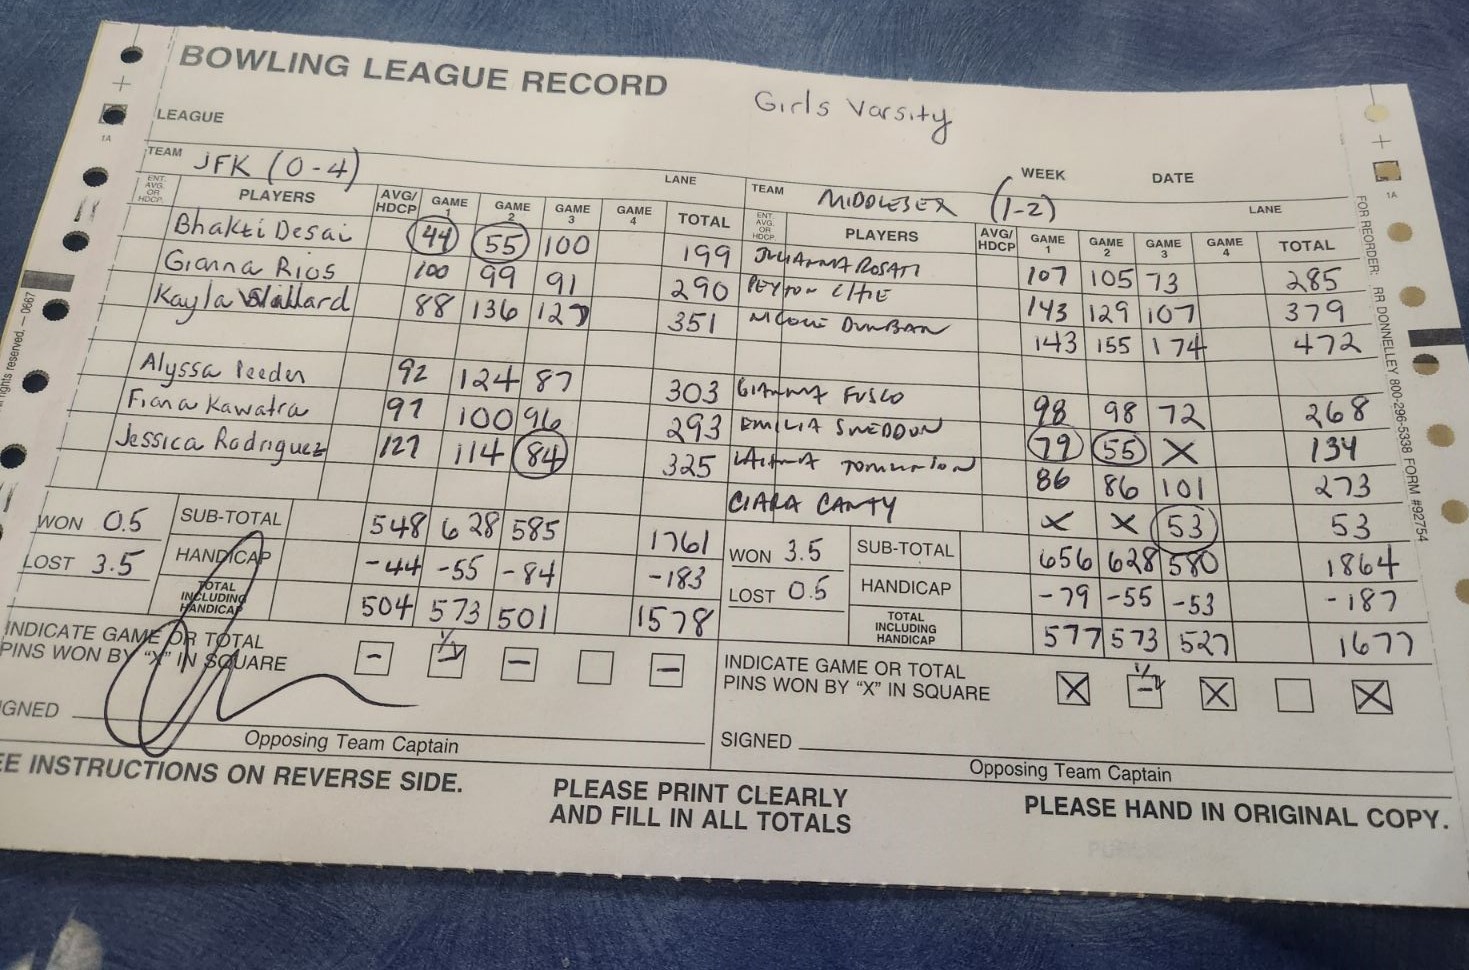 BOWLING LEAGUE RECORD
Girls Varsity
LEAGUE
TEAM JFK (0-4) LANE
ENT. AVG. OR HDCP. PLAYERS AVG/HDCP GAME 1 GAME 2 GAME 3 GAME 4 TOTAL
Bhakti Desai 44 55 100 199
Gianna Rios 100 99 91 290
Kayla Willard 88 136 127 351
Alyssa Reeder 92 124 87 303
Fiona Kawatra 97 100 96 293
Jessica Rodriguez 127 114 84 325
WON 0.5 SUB-TOTAL 548 628 585 1761
LOST 3.5 HANDICAP -44 -55 -84 -183
TOTAL INCLUDING HANDICAP 504 573 501 1578
INDICATE GAME OR TOTAL
PINS WON BY "X" IN SQUARE - 1/2 - - -
IGNED
Opposing Team Captain
WEEK DATE
TEAM MIDDLESEX (1-2) LANE
ENT. AVG. OR HDCP. PLAYERS AVG/HDCP GAME 1 GAME 2 GAME 3 GAME 4 TOTAL
JULIANNA ROSATI 107 105 73 285
PEYTON 143 129 107 379
NICOLE DUNBAN 143 155 174 472
GIANNA FUSCO 98 98 72 268
EMILIA SNEDDON 79 55 X 134
86 86 101 273
CIARA CANTY X X 53 53
WON 3.5 SUB-TOTAL 656 628 580 1864
LOST 0.5 HANDICAP -79 -55 -53 -187
TOTAL INCLUDING HANDICAP 577 573 527 1677
INDICATE GAME OR TOTAL
PINS WON BY "X" IN SQUARE X 1/2 - X X
SIGNED
Opposing Team Captain
EE INSTRUCTIONS ON REVERSE SIDE.
PLEASE PRINT CLEARLY
AND FILL IN ALL TOTALS
PLEASE HAND IN ORIGINAL COPY.
1A
1A
ights reserved. — 0667
FOR REORDER: RR DONNELLEY 800-296-5338 FORM #92754